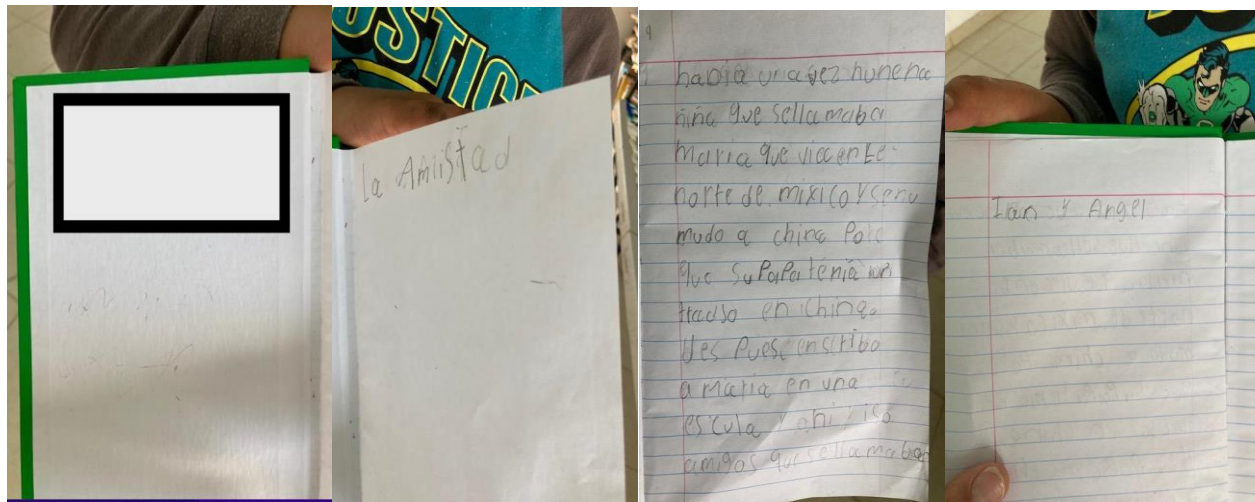 USTIC
la Amistad
habia una vez hunena
niña que sellamaba
maria que viocente
norte de mixico y senu
mudo a china Por
que suPaPa tenia un
tradso en ching.
des Pues enscribo
a maria en una
escula y ahi iso
amigos que sellamaban
Ian y Angel